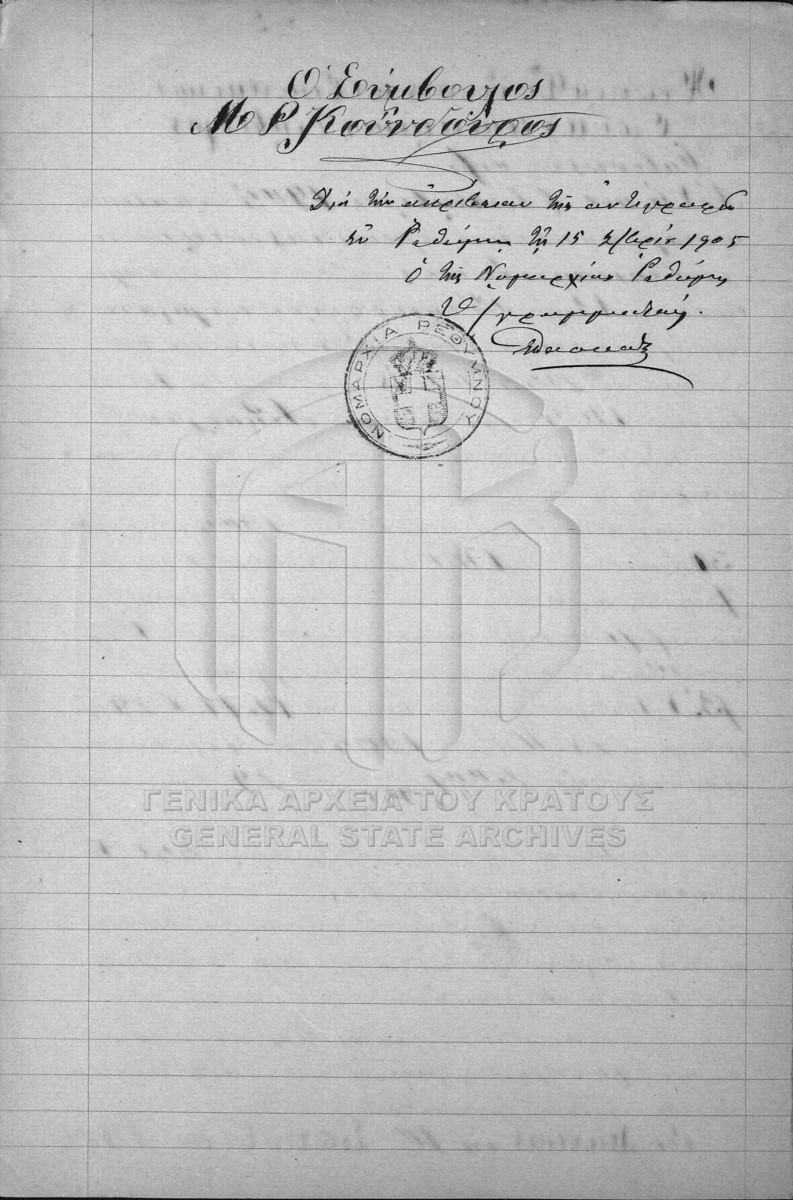 Ὁ Σύμβουλος
Μ Ρ Κούνδουρος
Διά τήν ἀκρίβειαν τῆς ἀντιγραφῆς
Ἐν Ρεθύμνῃ τῇ 15 1905
Ὁ τῆς Νομαρχίας Ρεθύμνης
γραμματεύς
ΝΟΜΑΡΧΙΑ ΡΕΘΥΜΝΟΥ
ΓΕΝΙΚΑ ΑΡΧΕΙΑ ΤΟΥ ΚΡΑΤΟΥΣ
GENERAL STATE ARCHIVES